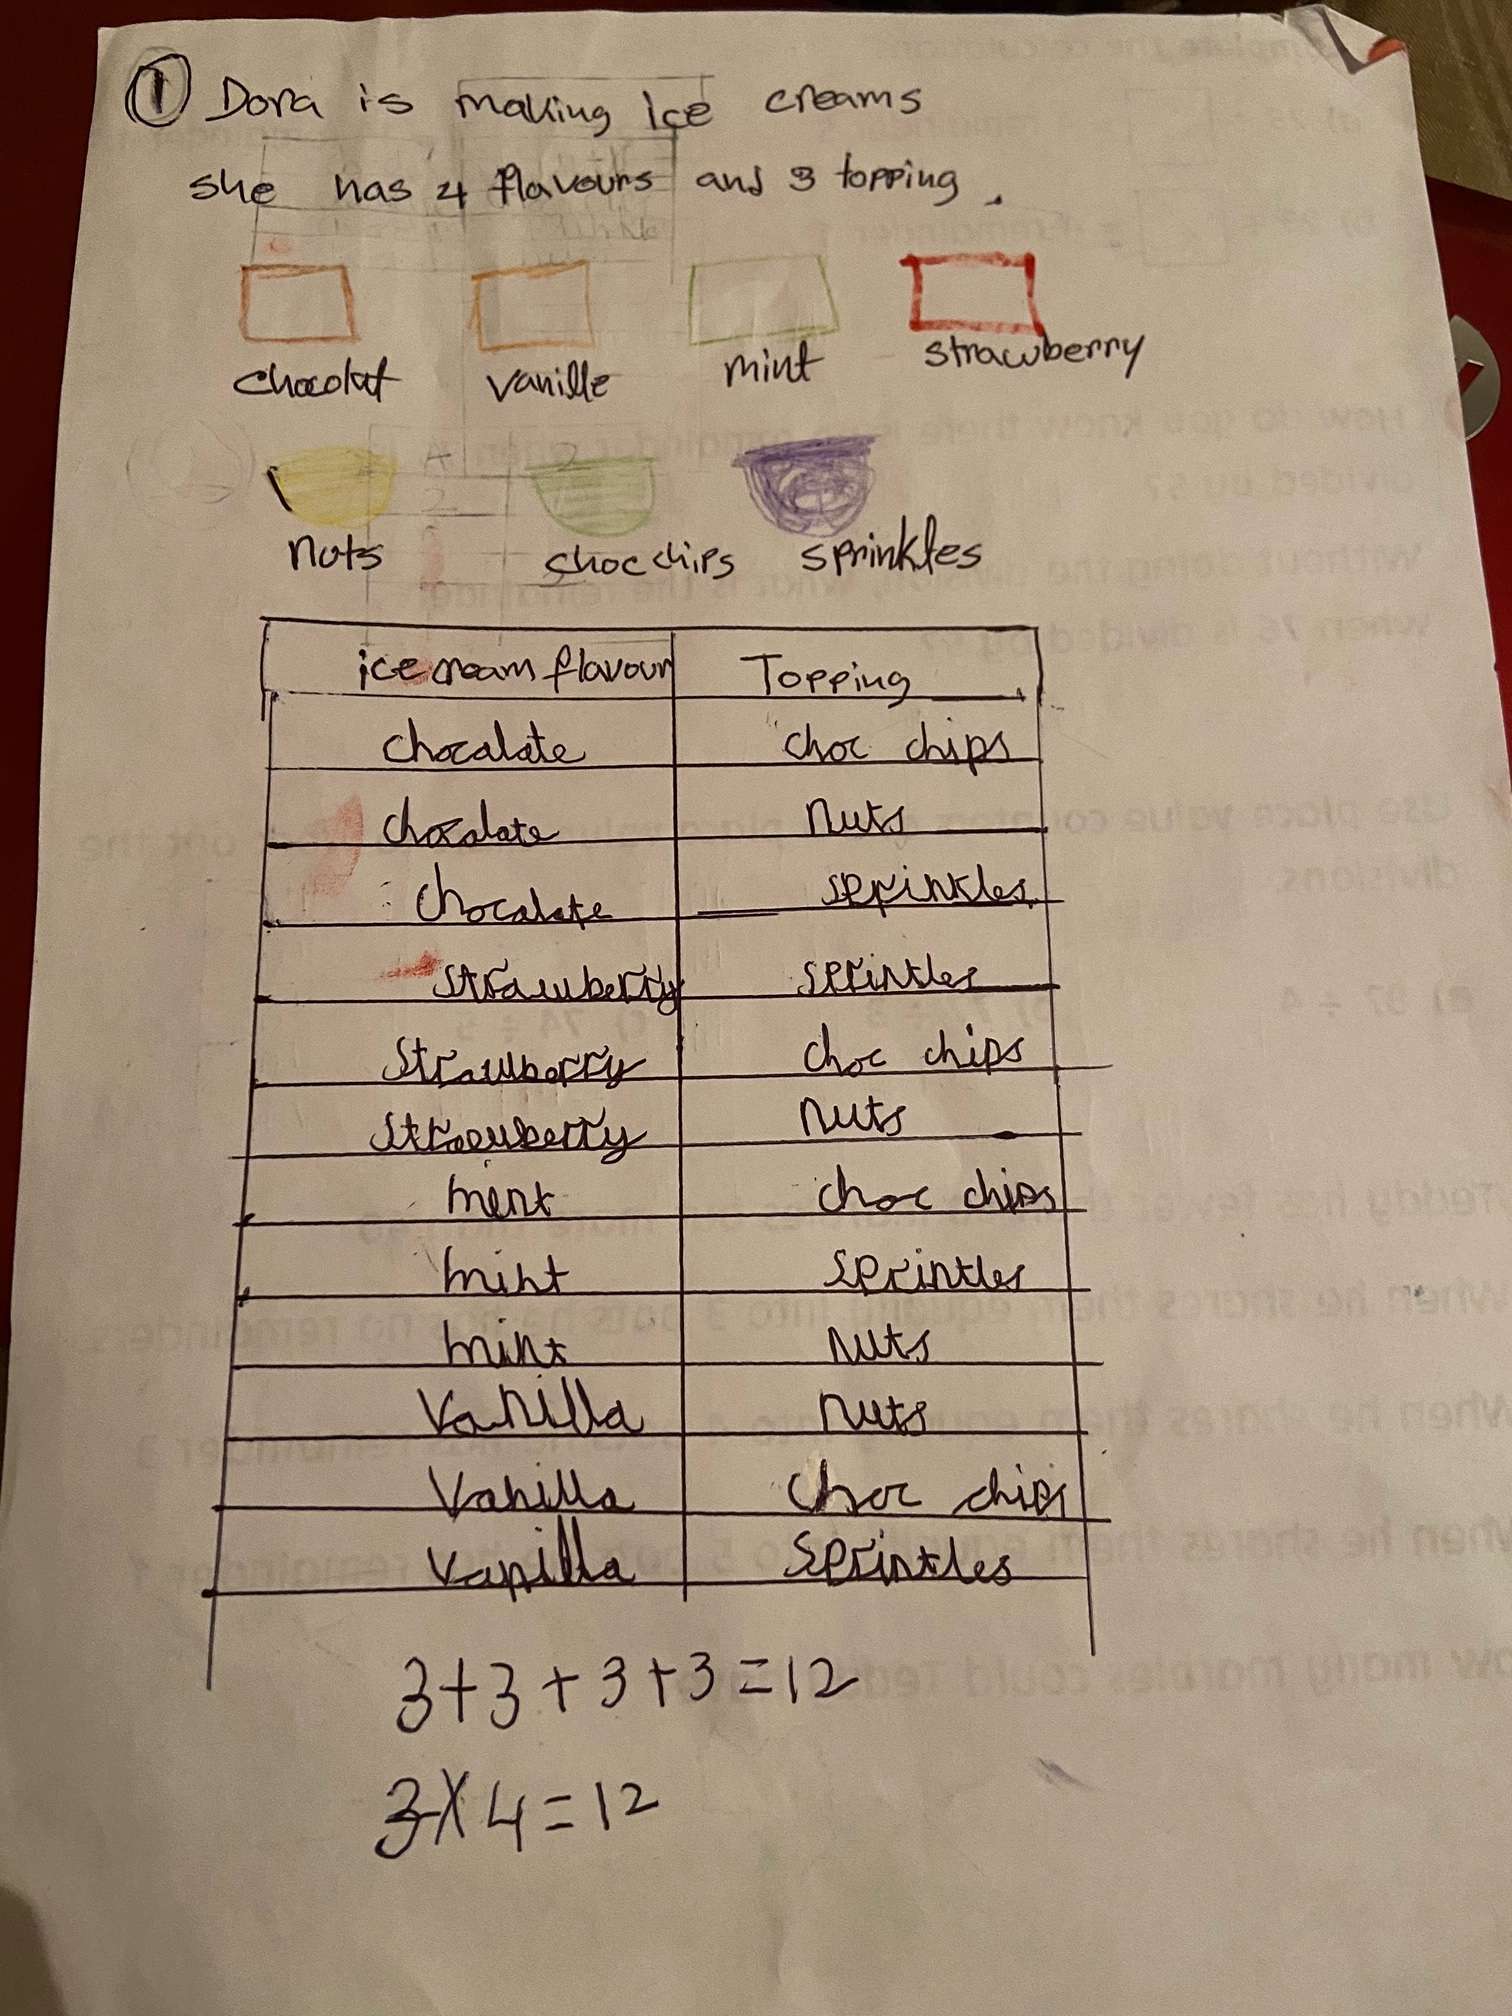 1 Dora is making ice creams
she has 4 flavours and 3 topping.
chocolat vanille mint strawberry
nuts chocchips sprinkles
icecream flavour Topping
chocalate choc chips
chocalate nuts
chocalate sprinkles
strawberry sprinkles
strawberry choc chips
strawberry nuts
mint choc chips
mint sprinkles
mint nuts
Vanilla nuts
Vanilla choc chips
Vanilla sprinkles
3+3+3+3=12
3×4=12